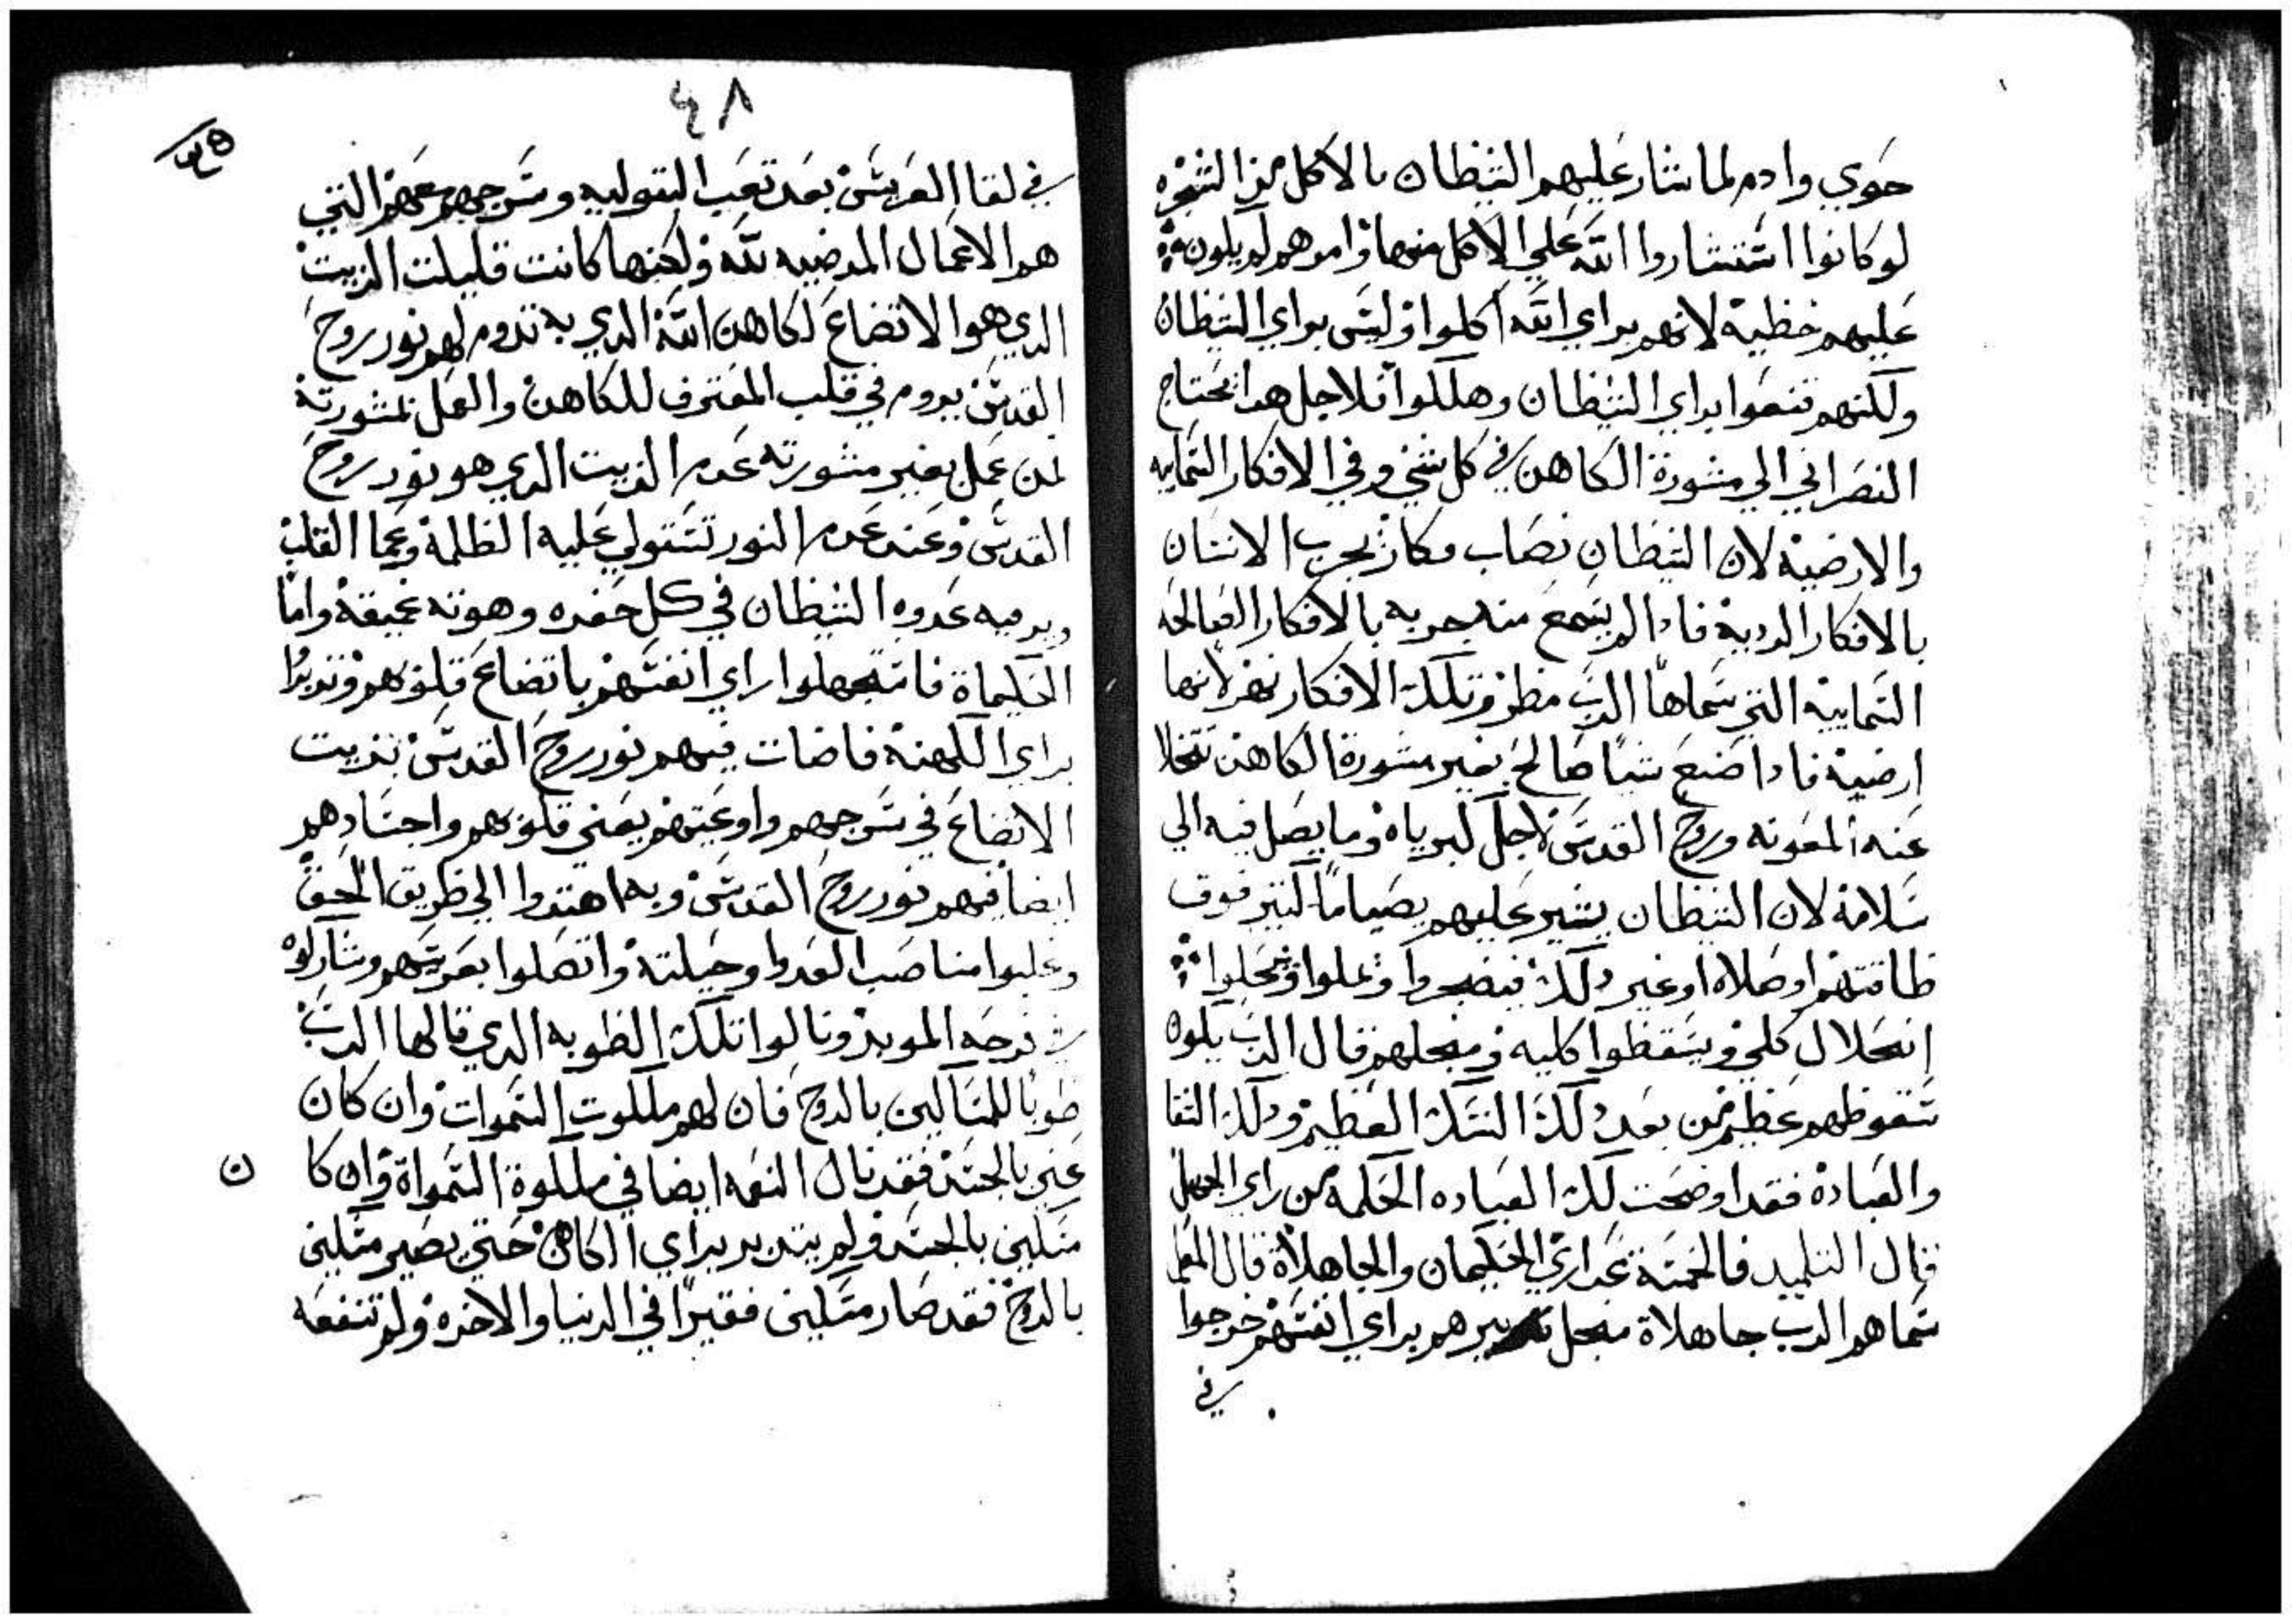 حوي وادم لما شار عليهم الشيطان بالاكل من الشجره
لو كانوا استشاروا الله علي الاكل منها وامرهم لم يكون
عليهم خطية لانهم براي الله اكلوا وليس براي الشيطان
ولكنهم تنعموا براي الشيطان وهلكوا فلاجل هدا يحتاج
النصراني الي مشورة الكاهن في كل شي وفي الافكار السمايه
والارضية لان الشيطان نصاب مكار يجرب الانسان
بالافكار الردية فادا لم يسمع منه جربه بالافكار الصالحه
السمايية التي سماها الرب مطر وتلك الافكار نهر لانها
ارضية فادا صنع شيا صالح بغير مشورة الكاهن تتخلا
عنه المعونه وروح القدس لاجل كبرياه وما يصل فيه الي
سلامة لان الشيطان يشير عليهم بصياما كتير فوق
طاقتهم او صلاه او غير دلك فيضجروا ويملوا وينحلوا
انحلال كلي ويسقطوا كليه ومنجلهم قال الرب يكون
سقوطهم عظيم من بعد دلك النسك العظيم ودلك التقا
والعبادة فقد اوضحت لك العباده الحكمه من راي الجهل
قال التلميد فالخمسة عداري الحكيمان والجاهلاة قال المعلم
سماهم الرب جاهلاة منجل تدبيرهم براي انفسهم خرجوا
في
٤٨
في لقا العريس بعد تعب البتوليه وسرجهم معهم التي
هم الاعمال المرضيه لله ولكنها كانت قليلت الزيت
الدي هو الاتضاع لكاهن الله الدي به تدوم لهم نور روح
القدس يدوم في قلب المعترف للكاهن والعمل بمشورته
لمن عمل بغير مشورته عدم الزيت الدي هو نور روح
القدس وعند عدم النور تستولي عليه الظلمة وعما القلب
ويرميه عدوه الشيطان في كل حفره وهوته عميقة واما
الحكيماة فاستجهلوا راي انفسهم باتضاع قلوبهم وتدبروا
براي الكهنة فاضات فيهم نور روح القدس بزيت
الاتضاع في سرجهم واوعيتهم يعني قلوبهم واجسادهم
ايضا فيهم نور روح القدس وبه اهتدوا الي طريق الحق
وغلبوا مناصب العدوا وحيلته واتصلوا بعريسهم وشاركوه
في فرحه الموبد ونالوا تلك الطوبه الدي قالها الرب
طوبا للمساكين بالروح فان لهم ملكوت السموات وان كان
غني بالجسد فقد نال النعمه ايضا في ملكوة السمواة وان كا ن
مسكين بالجسد ولم يتدبر براي الكاهن حتي يصير مسكين
بالروح فقد صار مسكين فقيرا في الدنيا والاخره ولم تنفعه